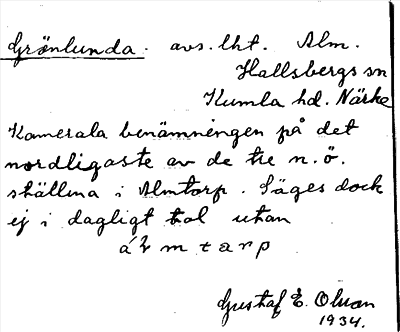 Grönlunda. avs. lht. Alm.
Hallsbergs sn
Kumla hd. Närke
Kamerala benämningen på det
nordligaste av de tre n.ö.
ställena i Almtorp. Säges dock
ej i dagligt tal utan
á2 m t a r p
Gustaf E. Olson
1934.